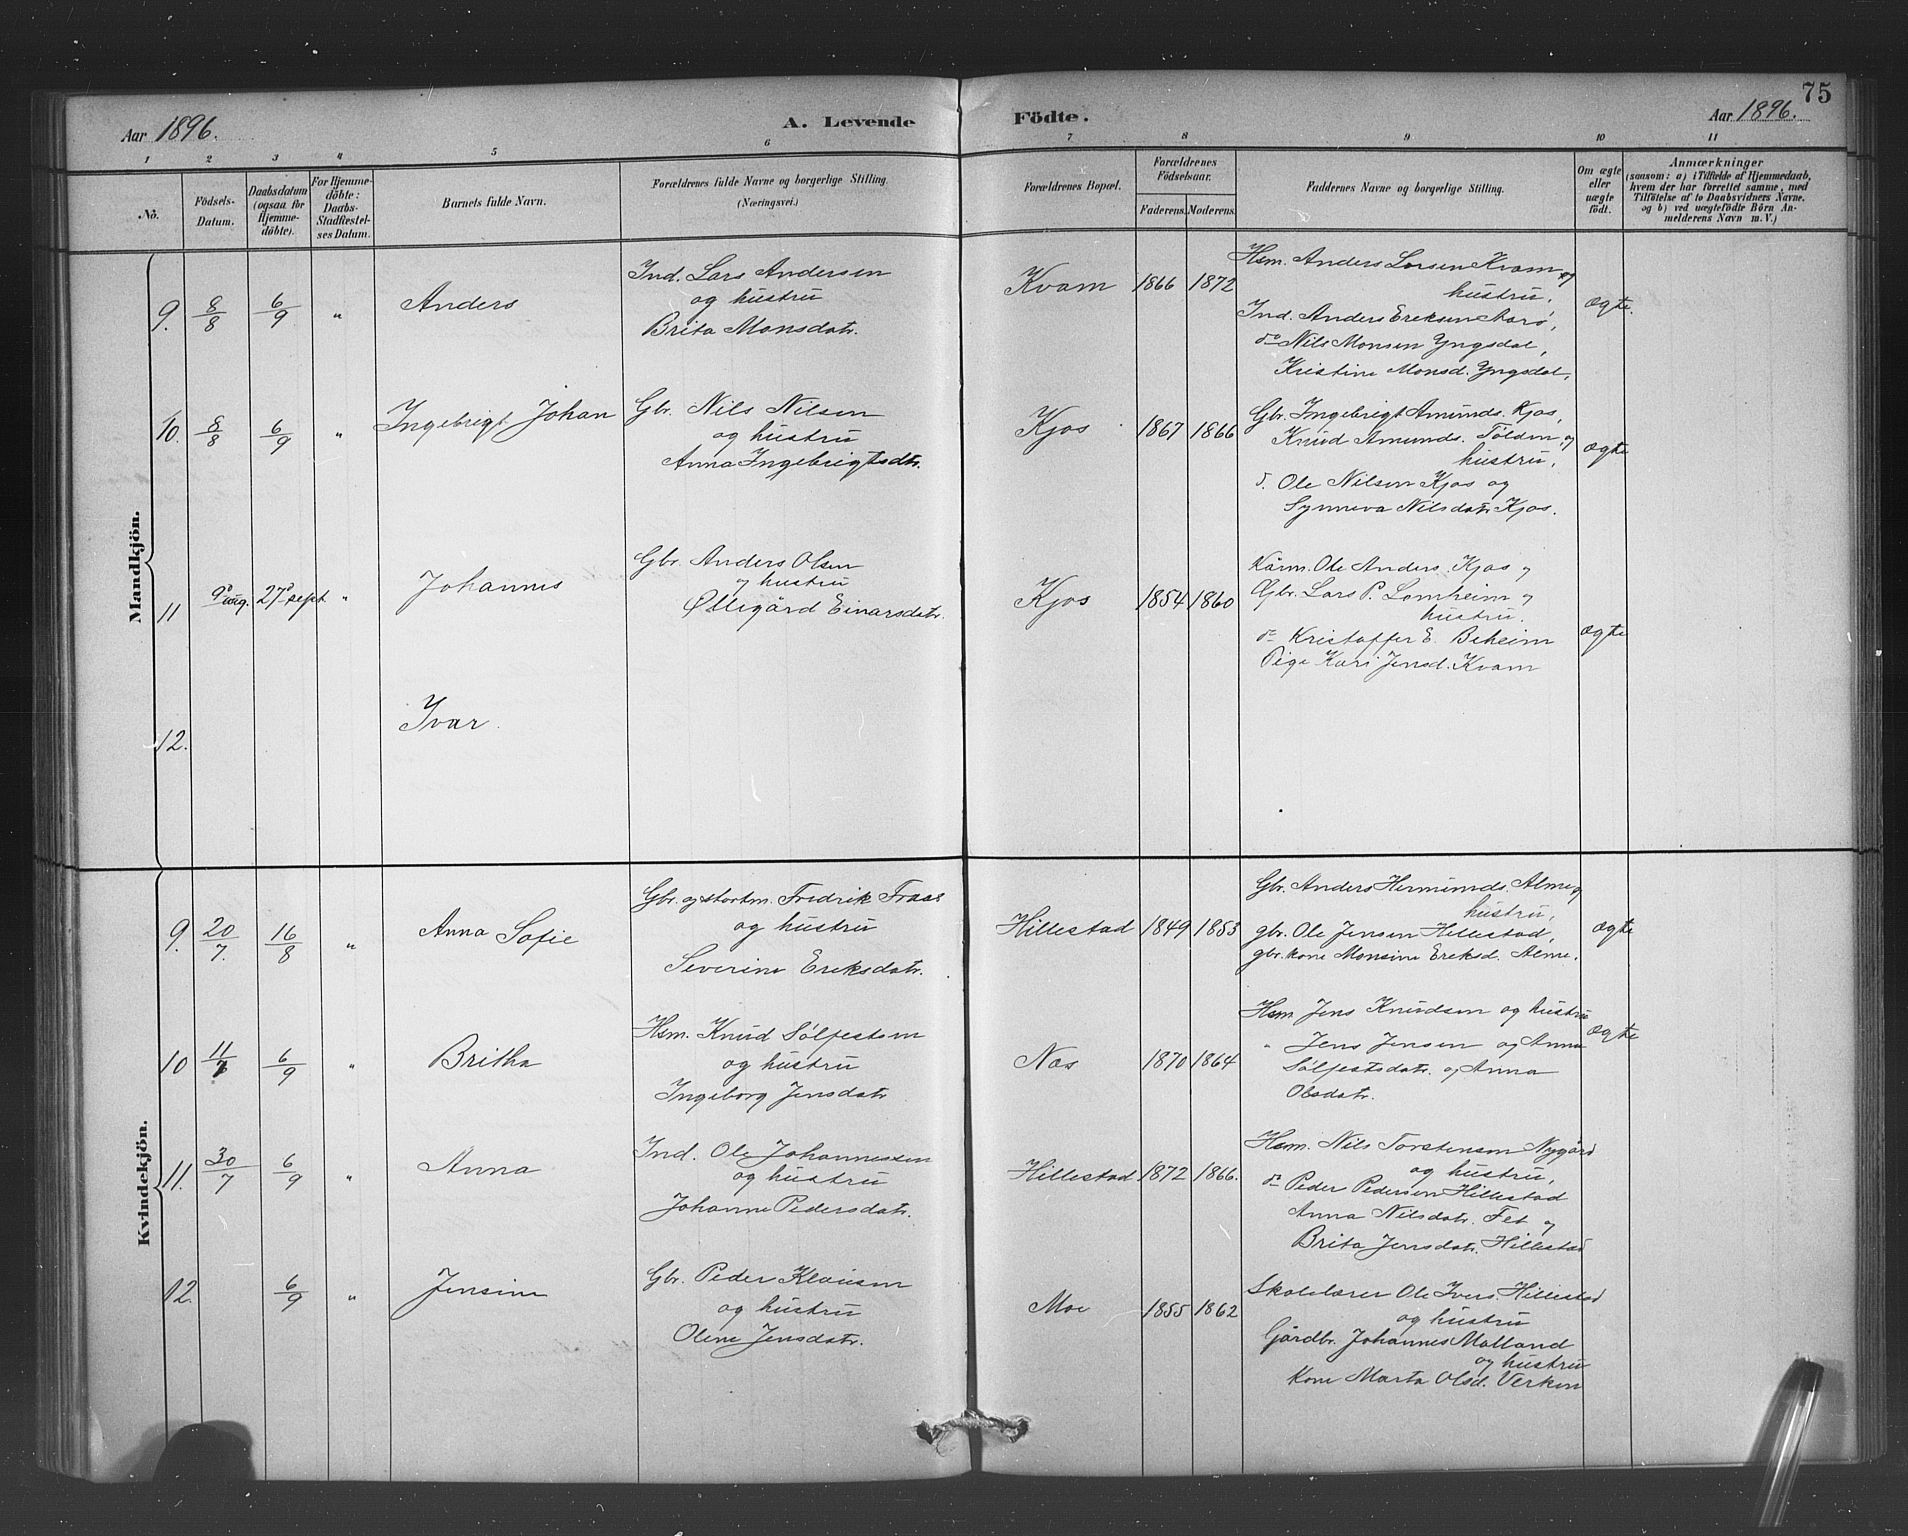 75
Aar 1896.
A. Levende Födte.
Aar 1896.
1 2 3 4 5 6 7 8 9 10 11
No.
Födsels-
Datum.
Daabsdatum
(ogsaa for
Hjemme-
döbte).
For Hjemme-
döbte:
Daabs-
Stadfestel-
ses Datum.
Barnets fulde Navn.
Forældrenes fulde Navne og borgerlige Stilling.
(Næringsvei.)
Forældrenes Bopæl.
Forældrenes
Födselsaar.
Faderens. Moderens.
Faddernes Navne og borgerlige Stilling.
Om ægte
eller
uægte
födt.
Anmærkninger
(saasom: a) i Tilfælde af Hjemmedaab,
hvem der har forrettet samme, med
Tilföielse af to Daabsvidners Navne,
og b) ved uægtefödte Börn An-
melderens Navn m. V.)
Mandkjön.
9. 8/8 6/9 " Anders
Ind. Lars Andersen
og hustru
Brita Monsdatr.
Kvam 1866 1872
Hsm. Anders Larsen Kvam og
hustru,
Ind. Anders Eriksen Aarø,
do Nils Monsen Yngsdal,
Kristine Monsd. Yngsdal,
ægte.
10. 8/8 6/9 " Ingebrigt Johan
Gbr. Nils Nilsen
og hustru
Anna Ingebrigtsdtr.
Kjos 1867 1866
Gbr. Ingebrigt Amunds. Kjos,
Knud Amunds. og
hustru,
d. Ole Nilsen Kjos og
Synneva Nilsdatr Kjos.
ægte
11 9de aug. 27de sept. " Johannes
Gbr. Anders Olsen
og hustru
Øllegård Einarsdatr.
Kjos 1854 1860
Kårm. Ole Anders. Kjos og
Gbr. Lars P. Lomheim og
hustru.
do Kristoffer E. Beheim
Pige Kari Jensd. Kvam
ægte
12. Ivar.
Kvindekjön.
9. 20/7. 16/8 " Anna Sofie
Gbr. og stortm. Fredrik Fraas
og hustru
Severine Eriksdatr.
Hillestad 1849 1853
Gbr. Anders Hermunds. Alme og
hustru,
gbr. Ole Jensen Hillestad,
gbr. kone Monsine Eriksd. Alme.
ægte
10 11/7 6/9 " Britha
Hsm. Knud Sølfestsen
og hustru
Ingeborg Jensdatr
Nes 1870 1864
Hsm Jens Knudsen og hustru
" Jens Jensen og Anna
Sølfestsdatr. og Anna
Olsdatr.
ægte
11. 30/7 6/9 " Anna
Ind. Ole Johannessen
og hustru
Johanne Pedersdatr.
Hillestad 1872 1866.
Hsm. Nils Torstensen Nygård
og hustru,
do Peder Pedersen Hillestad
Anna Nilsdatr. Fet og
Brita Jensdatr. Hillestad
12. 6/9 " Jensine
Gbr. Peder Klausen
og hustru
Oline Jensdatr.
Moe 1855 1862
Skolelærer Ole Ivers. Hillestad
og hustru
Gårdbr. Johannes Molland
og hustru
Kone Marta Olsd. Verken